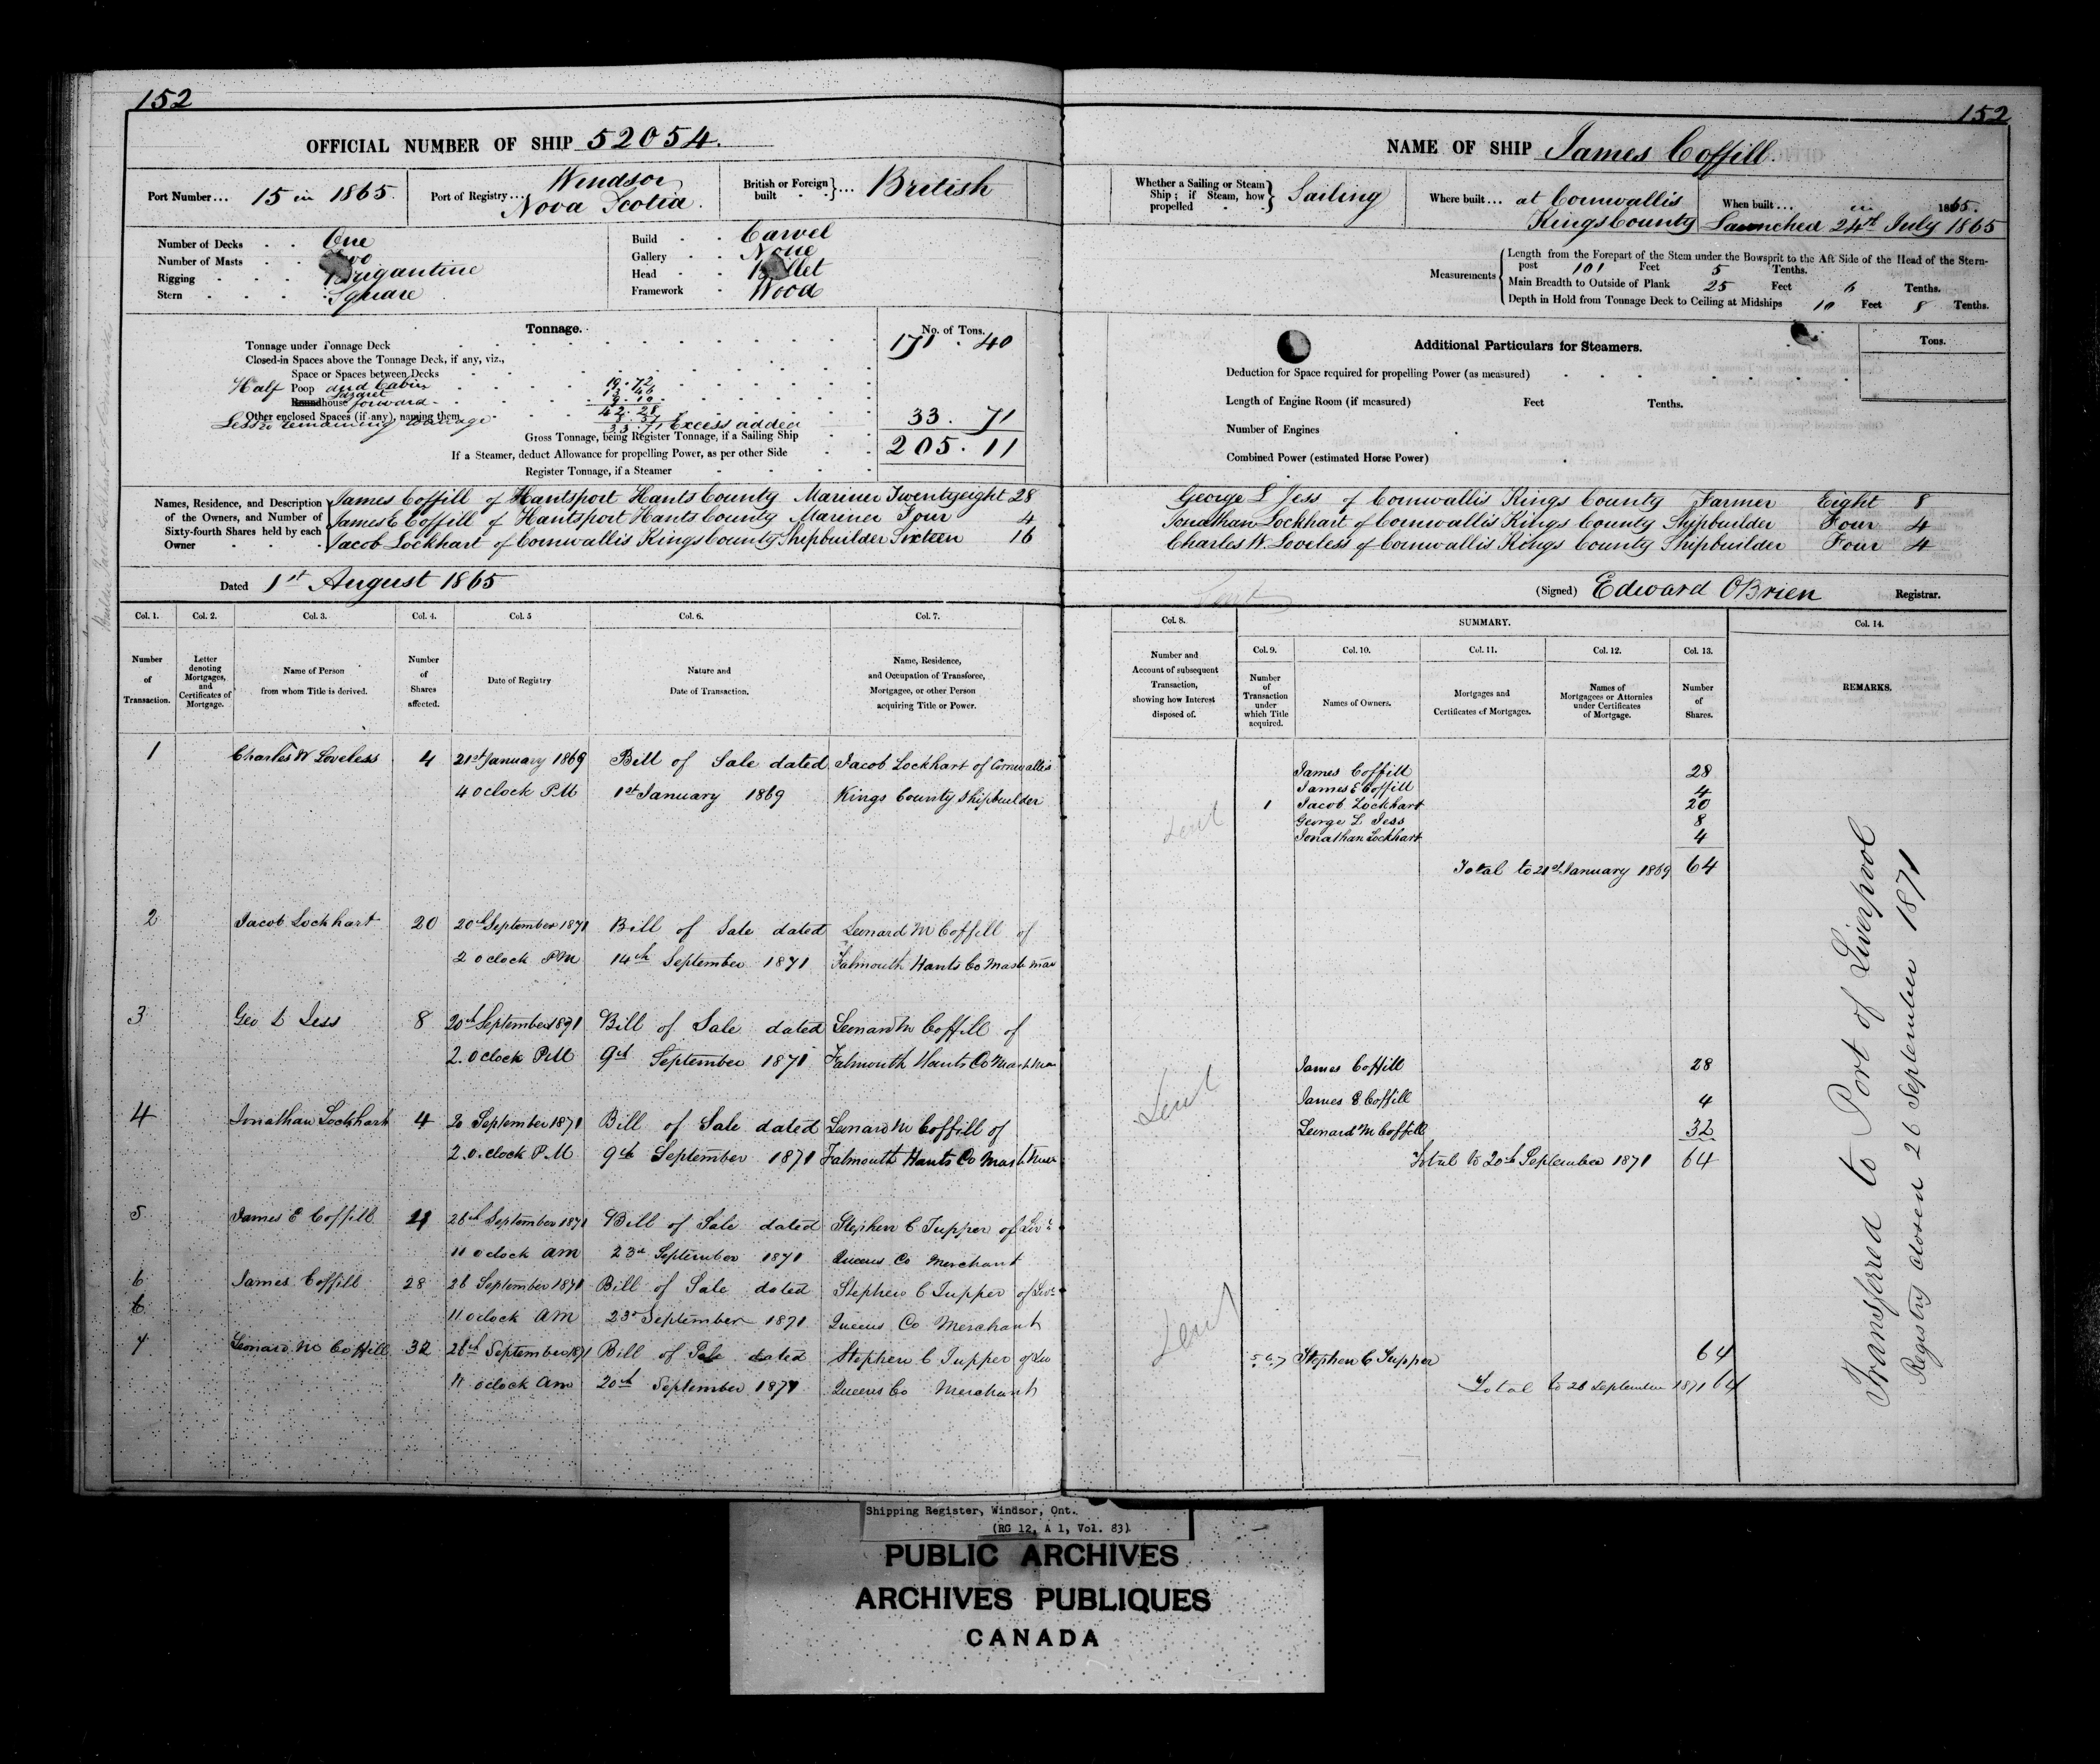 152
OFFICIAL NUMBER OF SHIP 52054.
Port Number... 15 in 1865.
Port of Registry... Windsor
Nova Scotia.
British or Foreign built }... British
Number of Decks One
Number of Masts Two
Rigging Brigantine
Stern Square
Build Carvel
Gallery None
Head Billet
Framework Wood
Tonnage.
No. of Tons.
Tonnage under Tonnage Deck 171 . 40
Closed-in Spaces above the Tonnage Deck, if any, viz.,
Space or Spaces between Decks
Half Poop and Cabin 19.72
Lazaret
Roundhouse forward 9.10
42.28
Other enclosed Spaces (if any), naming them
Less remaining tonnage 8.57
33.71 Excess added 33 . 71
Gross Tonnage, being Register Tonnage, if a Sailing Ship 205 . 11
If a Steamer, deduct Allowance for propelling Power, as per other Side
Register Tonnage, if a Steamer
Names, Residence, and Description of the Owners, and Number of Sixty-fourth Shares held by each Owner
James Coffill of Hantsport Hants County Mariner Twentyeight 28
James E Coffill of Hantsport Hants County Mariner Four 4
Jacob Lockhart of Cornwallis Kings County Shipbuilder Sixteen 16
Dated 1st August 1865
Col. 1. Col. 2. Col. 3. Col. 4. Col. 5 Col. 6. Col. 7.
Number of Transaction.
Letter denoting Mortgages, and Certificates of Mortgage.
Name of Person from whom Title is derived.
Number of Shares affected.
Date of Registry
Nature and Date of Transaction.
Name, Residence, and Occupation of Transferee, Mortgagee, or other Person acquiring Title or Power.
1 Charles W Loveless 4 21st January 1869 Bill of Sale dated Jacob Lockhart of Cornwallis
4 oclock PM 1st January 1869 Kings County Shipbuilder
2 Jacob Lockhart 20 20th September 1871 Bill of Sale dated Leonard M Coffill of
2 oclock PM 14th September 1871 Falmouth Hants Co
3 Geo L Jess 8 20th September 1871 Bill of Sale dated Leonard M Coffill of
2. oclock PM 9th September 1871 Falmouth Hants Co
4 Jonathan Lockhart 4 20 September 1871 Bill of Sale dated Leonard M Coffill of
2. o.clock PM 9th September 1871 Falmouth Hants Co
5 James E Coffill 4 26th September 1871 Bill of Sale dated Stephen C Tupper of
11 oclock AM 23rd September 1871 Queens Co Merchant
6 James Coffill 28 26 September 1871 Bill of Sale dated Stephen C Tupper of
6 11 oclock AM 23rd September 1871 Queens Co Merchant
7 Leonard M Coffill 32 26th September 1871 Bill of Sale dated Stephen C Tupper of
11 oclock am 20th September 1871 Queens Co Merchant
152
NAME OF SHIP James Coffill.
Whether a Sailing or Steam Ship; if Steam, how propelled } Sailing
Where built... at Cornwallis
Kings County
When built... in 1865.
Launched 24th July 1865
Measurements
Length from the Forepart of the Stem under the Bowsprit to the Aft Side of the Head of the Stern-
post 101 Feet 5 Tenths.
Main Breadth to Outside of Plank 25 Feet 6 Tenths.
Depth in Hold from Tonnage Deck to Ceiling at Midships 10 Feet 8 Tenths.
Additional Particulars for Steamers.
Tons.
Deduction for Space required for propelling Power (as measured)
Length of Engine Room (if measured) Feet Tenths.
Number of Engines
Combined Power (estimated Horse Power)
George L Jess of Cornwallis Kings County Farmer Eight 8
Jonathan Lockhart of Cornwallis Kings County Shipbuilder Four 4
Charles W. Loveless of Cornwallis Kings County Shipbuilder Four 4
(Signed) Edward OBrien Registrar.
Col. 8. SUMMARY. Col. 14.
Col. 9. Col. 10. Col. 11. Col. 12. Col. 13.
Number and Account of subsequent Transaction, showing how Interest disposed of.
Number of Transaction under which Title acquired.
Names of Owners.
Mortgages and Certificates of Mortgages.
Names of Mortgagees or Attornies under Certificates of Mortgage.
Number of Shares.
REMARKS.
James Coffill 28
James E Coffill 4
1 Jacob Lockhart 20
George L Jess 8
Jonathan Lockhart 4
Total to 21st January 1869 64
James Coffill 28
James E Coffill 4
Leonard M Coffill 32
Total to 20th September 1871 64
5.6.7 Stephen C Tupper 64
Total to 26 September 1871 64
Transferred to Port of Liverpool
Registry closed 26 September 1871
Shipping Register, Windsor, Ont.
(RG 12, A 1, Vol. 83)
PUBLIC ARCHIVES
ARCHIVES PUBLIQUES
CANADA